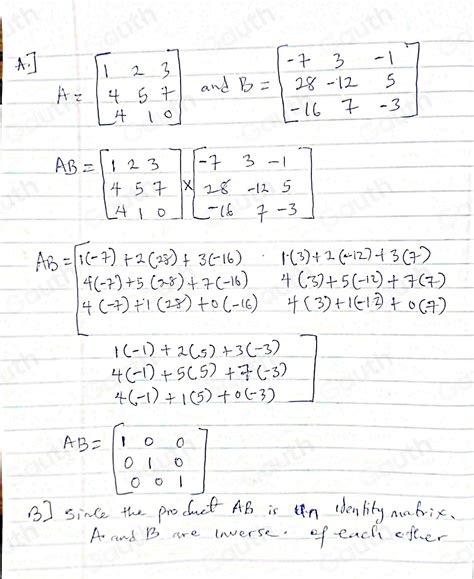 A.]
A = [1 2 3 and B = [-7 3 -1
4 5 7 28 -12 5
4 1 0] -16 7 -3]
AB = [1 2 3 × [-7 3 -1
4 5 7 28 -12 5
4 1 0] -16 7 -3]
AB = [1(-7) + 2(28) + 3(-16) 1(3) + 2(-12) + 3(7)
4(-7) + 5(28) + 7(-16) 4(3) + 5(-12) + 7(7)
4(-7) + 1(28) + 0(-16) 4(3) + 1(-12) + 0(7)
1(-1) + 2(5) + 3(-3)
4(-1) + 5(5) + 7(-3)
4(-1) + 1(5) + 0(-3)]
AB = [1 0 0
0 1 0
0 0 1]
B] Since the product AB is an identity matrix.
A and B are inverse of each other